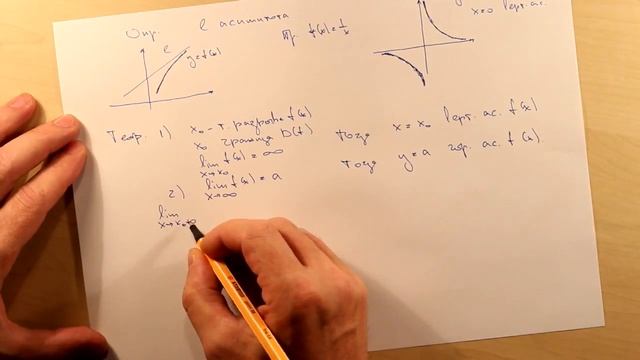 Опр. l асимптота
Пр. f(x)=1/x
x=0 верт. ас.
l
y=f(x)
Теор. 1) x₀ - т. разрыва f(x)
x₀ граница D(f)
lim f(x) = ∞
x→x₀
тогда x = x₀ верт. ас. f(x)
2) lim f(x) = a
x→∞
тогда y = a гор. ас. f(x)
lim
x→x₀+0